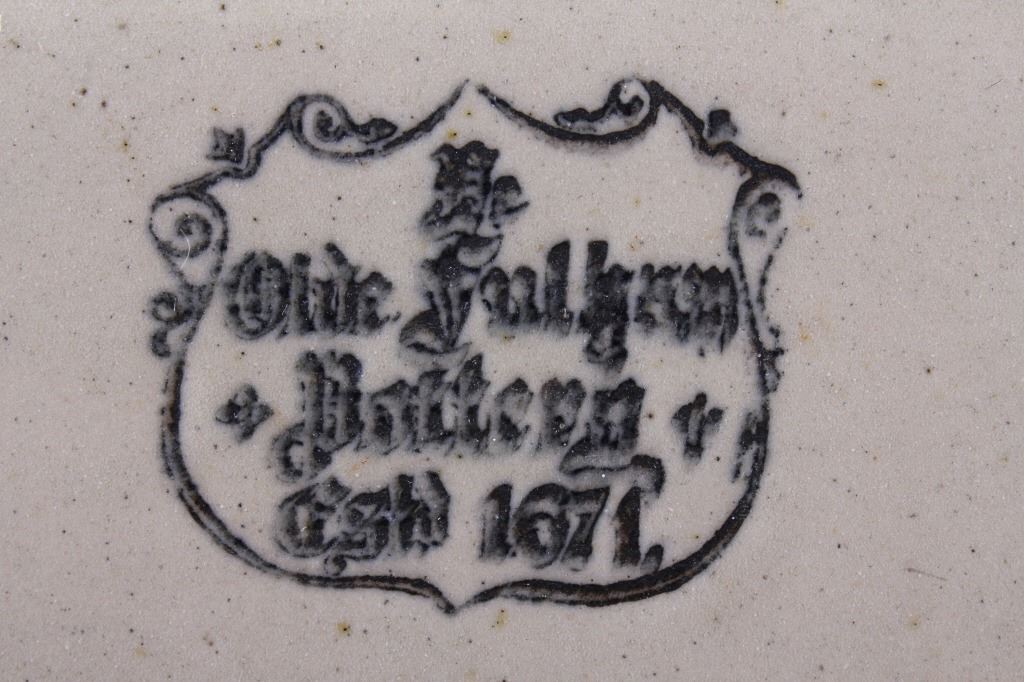 Ye
Olde Fulham
Pottery
Estd 1671.